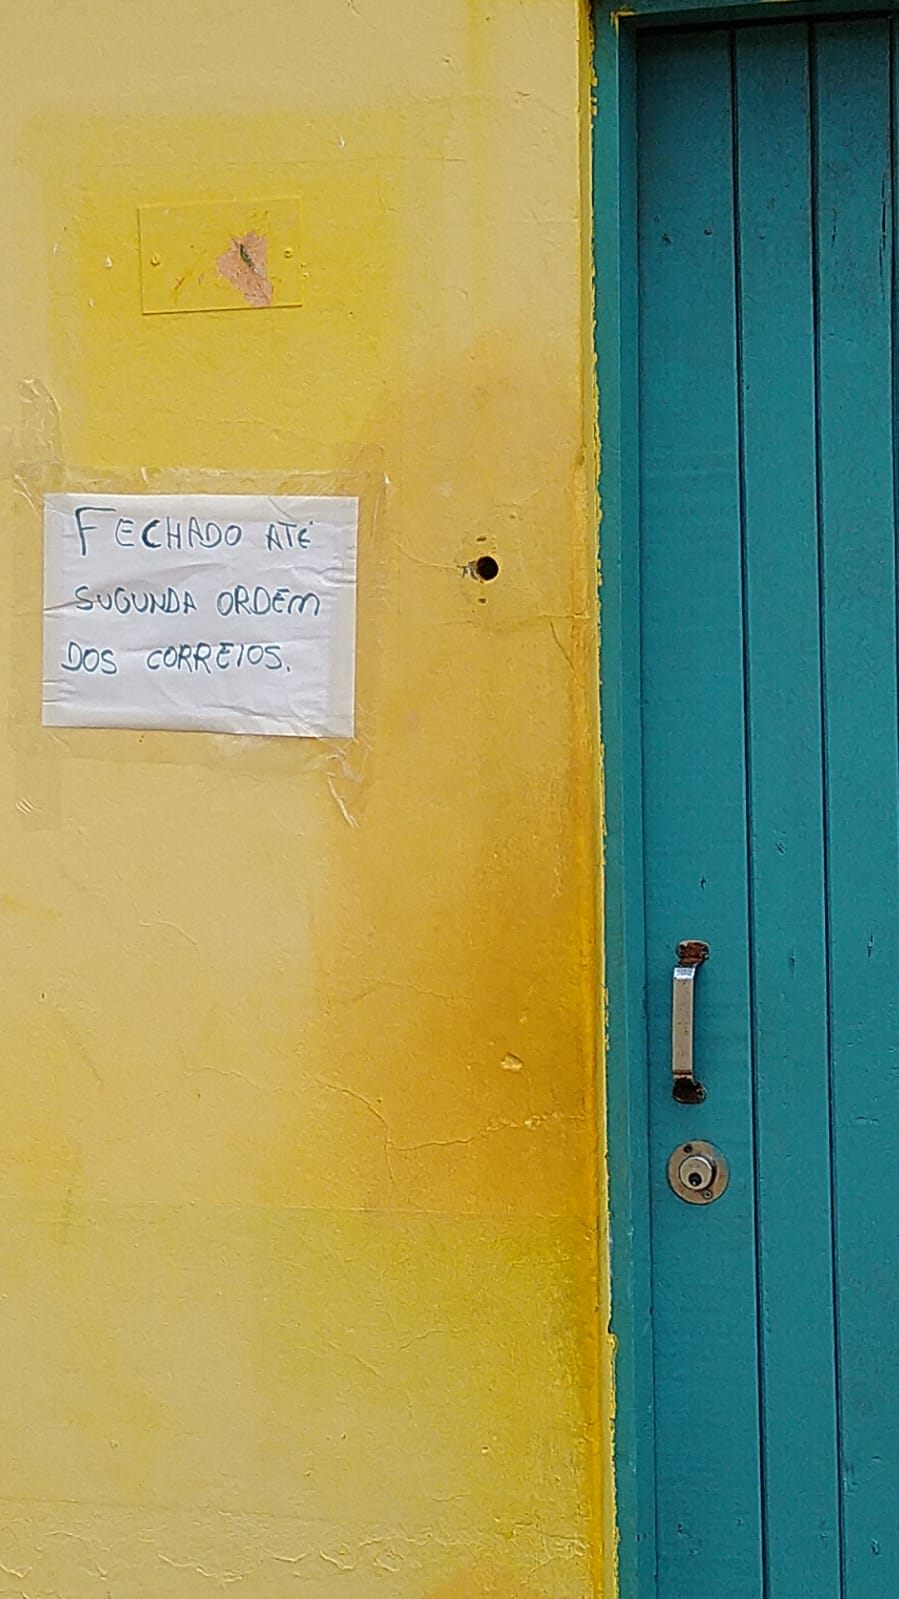 FECHADO ATÉ
SUGUNDA ORDEM
DOS CORREIOS.